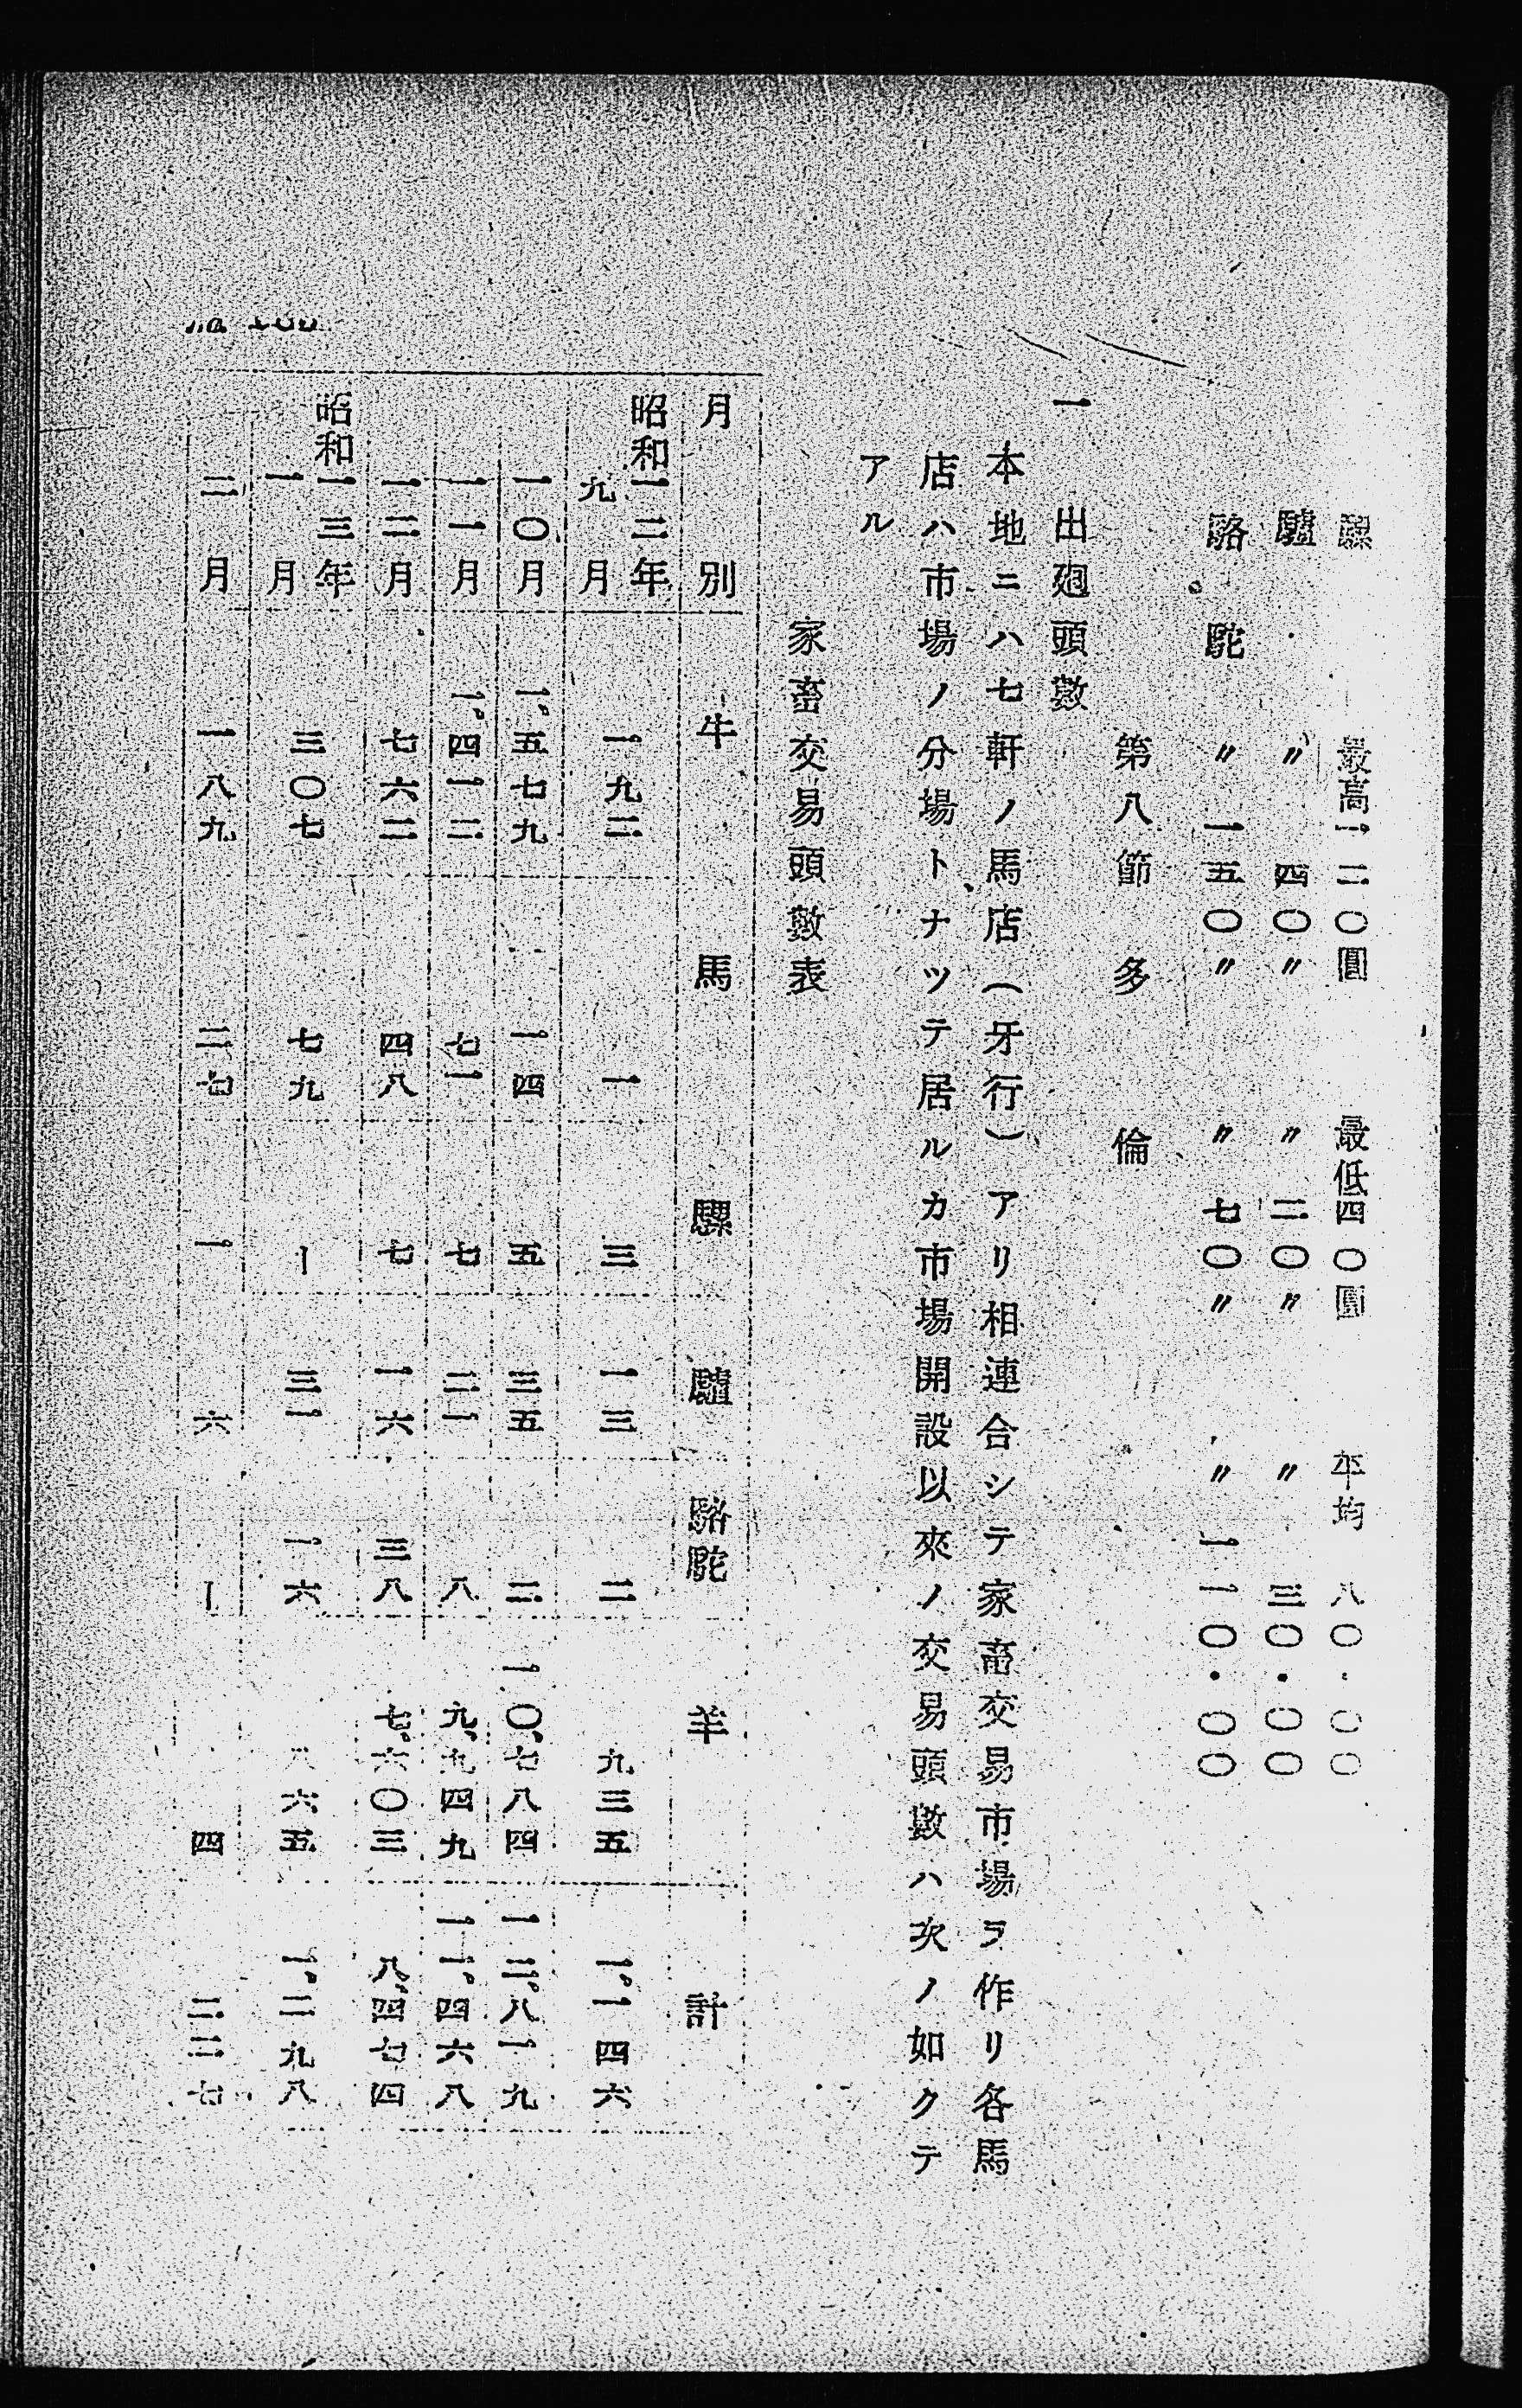 騾 最高一二〇圓 最低四〇圓 平均 八〇・〇〇
驢 〃 四〇〃 〃 二〇〃 〃 三〇・〇〇
駱駝 〃 一五〇〃 〃 七〇〃 〃 一一〇・〇〇
第八節 多倫
一 出廻頭數
本地ニハ七軒ノ馬店(牙行)アリ相連合シテ家畜交易市場ヲ作リ各馬
店ハ市場ノ分場トナツテ居ルカ市場開設以來ノ交易頭數ハ次ノ如クテ
アル
家畜交易頭數表
月別 牛 馬 騾 驢 駱駝 羊 計
昭和一二年九月 一九二 一 三 一三 二 九三五 一、一四六
一〇月 一、五七九 一四 五 三五 二 一〇、七八四 一二、八一九
一一月 一、四一二 七一 七 二一 八 九、九四九 一一、四六八
一二月 七六二 四八 七 一六 三八 七、六〇三 八、四七四
昭和一三年一月 三〇七 七九 ー 三一 一六 八六五 一、二九八
二月 一八九 二七 一 六 ー 四 二二七